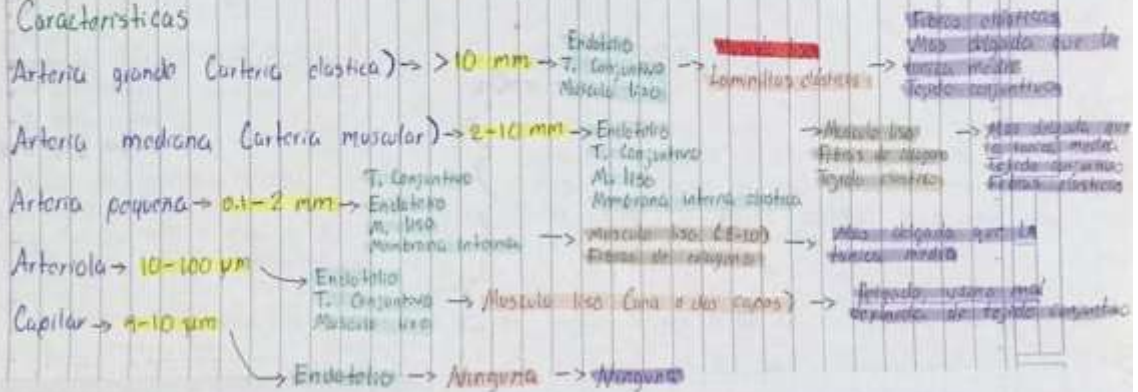 Características
Arteria grande (arteria elastica) → > 10 mm → Endotelio
T. Conjuntivo
Musculo liso → Musculo liso
Laminillas elásticas → Fibras elásticas
Mas delgada que la
tunica media
Tejido conjuntivo
Arteria mediana (arteria muscular) → 2-10 mm → Endotelio
T. Conjuntivo
M. liso
Membrana interna elástica → Musculo liso
Fibras de
Tejido elástico → Mas delgada que
la tunica media
Tejido conjuntivo
Fibras elasticas
Arteria pequeña → 0.1-2 mm → T. Conjuntivo
Endotelio
M. liso
Membrana interna → Musculo liso (8-10)
Fibras de → Mas delgada que la
tunica media
Arteriola → 10-100 µm → Endotelio
T. Conjuntivo
Musculo liso → Musculo liso (una o dos capas) → mal
de tejido conjuntivo
Capilar → 4-10 µm → Endotelio → Ninguna → Ninguna